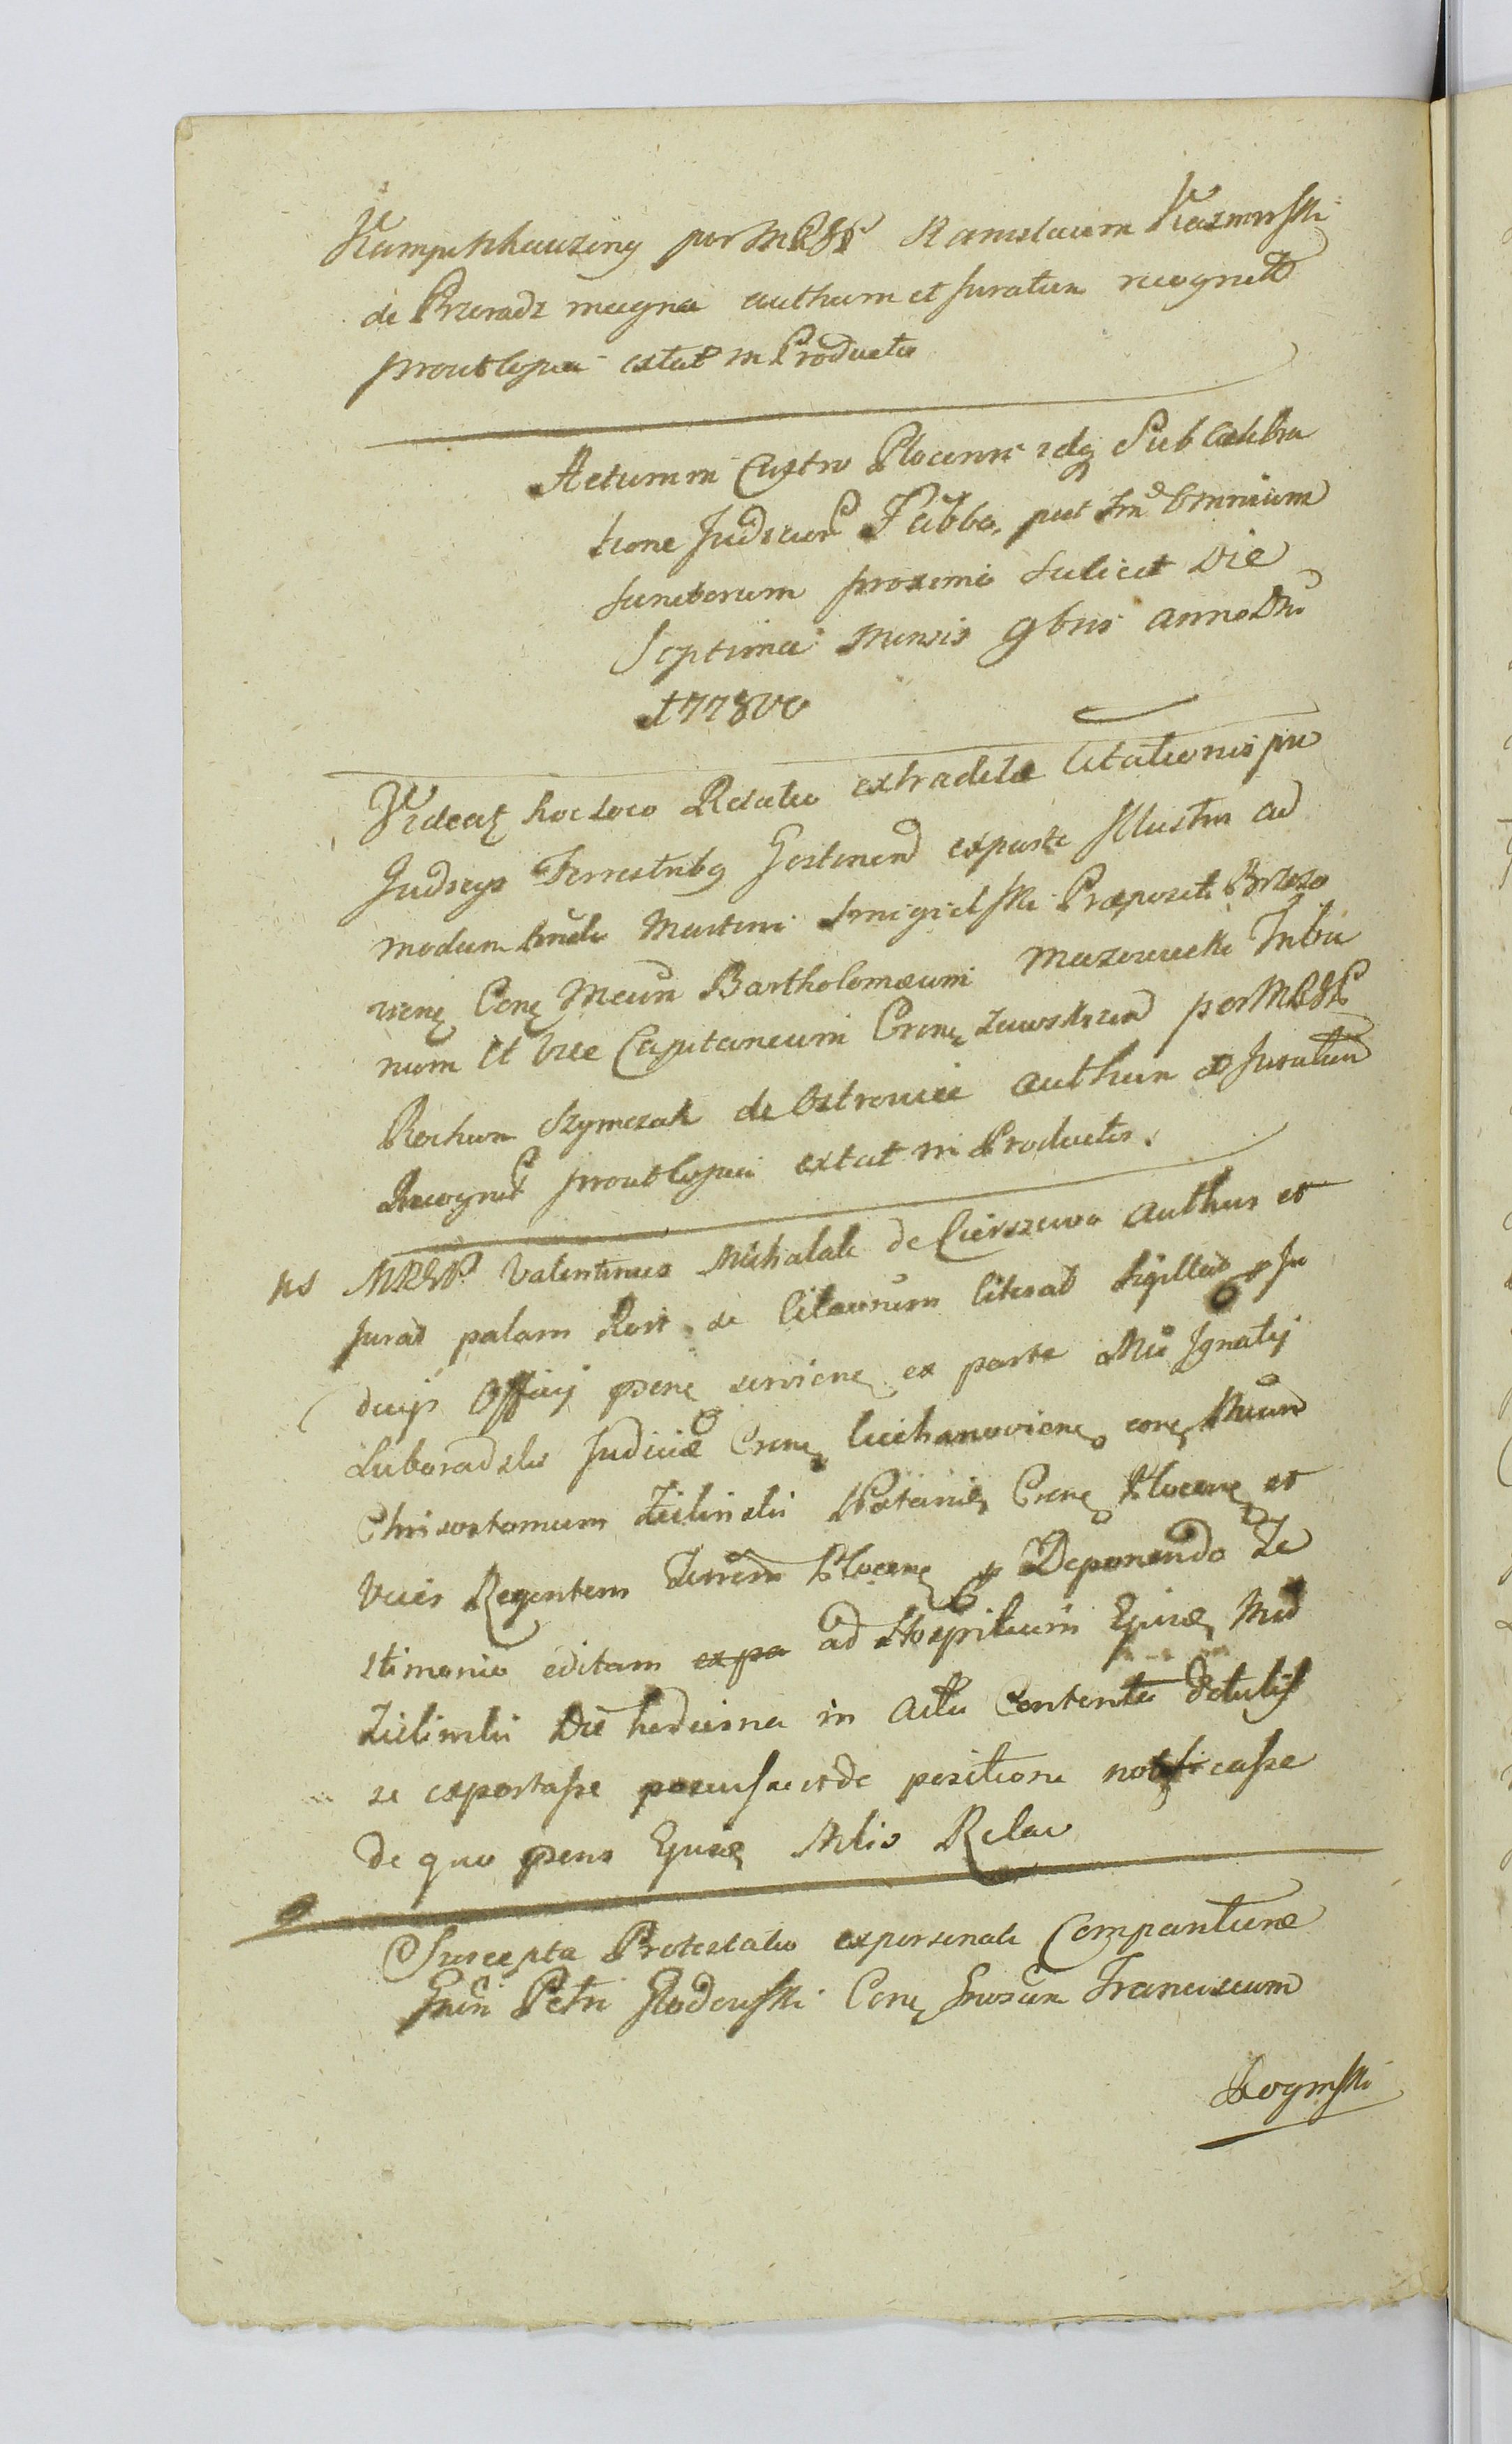 Kampenhauzeny per MRGP Stanislaum Kazmirski
de Przeradz magna authum et Juratum recognit
prout Copia extat in Producta
Actum in Castro Plocensi idq Sub Celebra
tione Judicior Fabba, post fm Omnium
Sanctorum proximo Scilicet Die
Septima Mensis 9bris anno Dni
1778vo
Videatz hoc Loco Relatio extraditæ Citationis pro
Judicys Terrestribq Gostinen ex parte Illustris ad
modum Rndi Martini Smigielski Præpositi Brzezo
vienz Conz Mcum Bartholomæum Mazowiecki Tribu
num et Vice Capitaneum Crenz Zawskrzen per MRGP
Rochum Szymczak de Ostrowie authum & Juratum
Recognit prout Copia extat in Productis.
ns MRGP. Valentinus Michalak de Cierszewo authus et
Jurat palam Rort se Citaonum literat Sigillat p Ju
dicys Officij psenz servienz ex parte Mci Ignatij
Luboradzki Judicis Crenz Ciechanovienz conz Mcum
Chrisostomum Zielinski Notariu Crenz Plocenz et
Vices Regentem Terrem Plocenz p Deponendo Te
stimonio editam ex pa ad Hospitium Ejusdz Mci
Zielinski Die hodierna in Actu Contenta detulis
se exportasse posuisse et de positione notificasse
de quo psens Ejusdz Mlis Relao
Suscepta Protestatio ex personali Comparitione
Gnsi Petri Glodowski Conz Gnosum Franciscum
Roginski